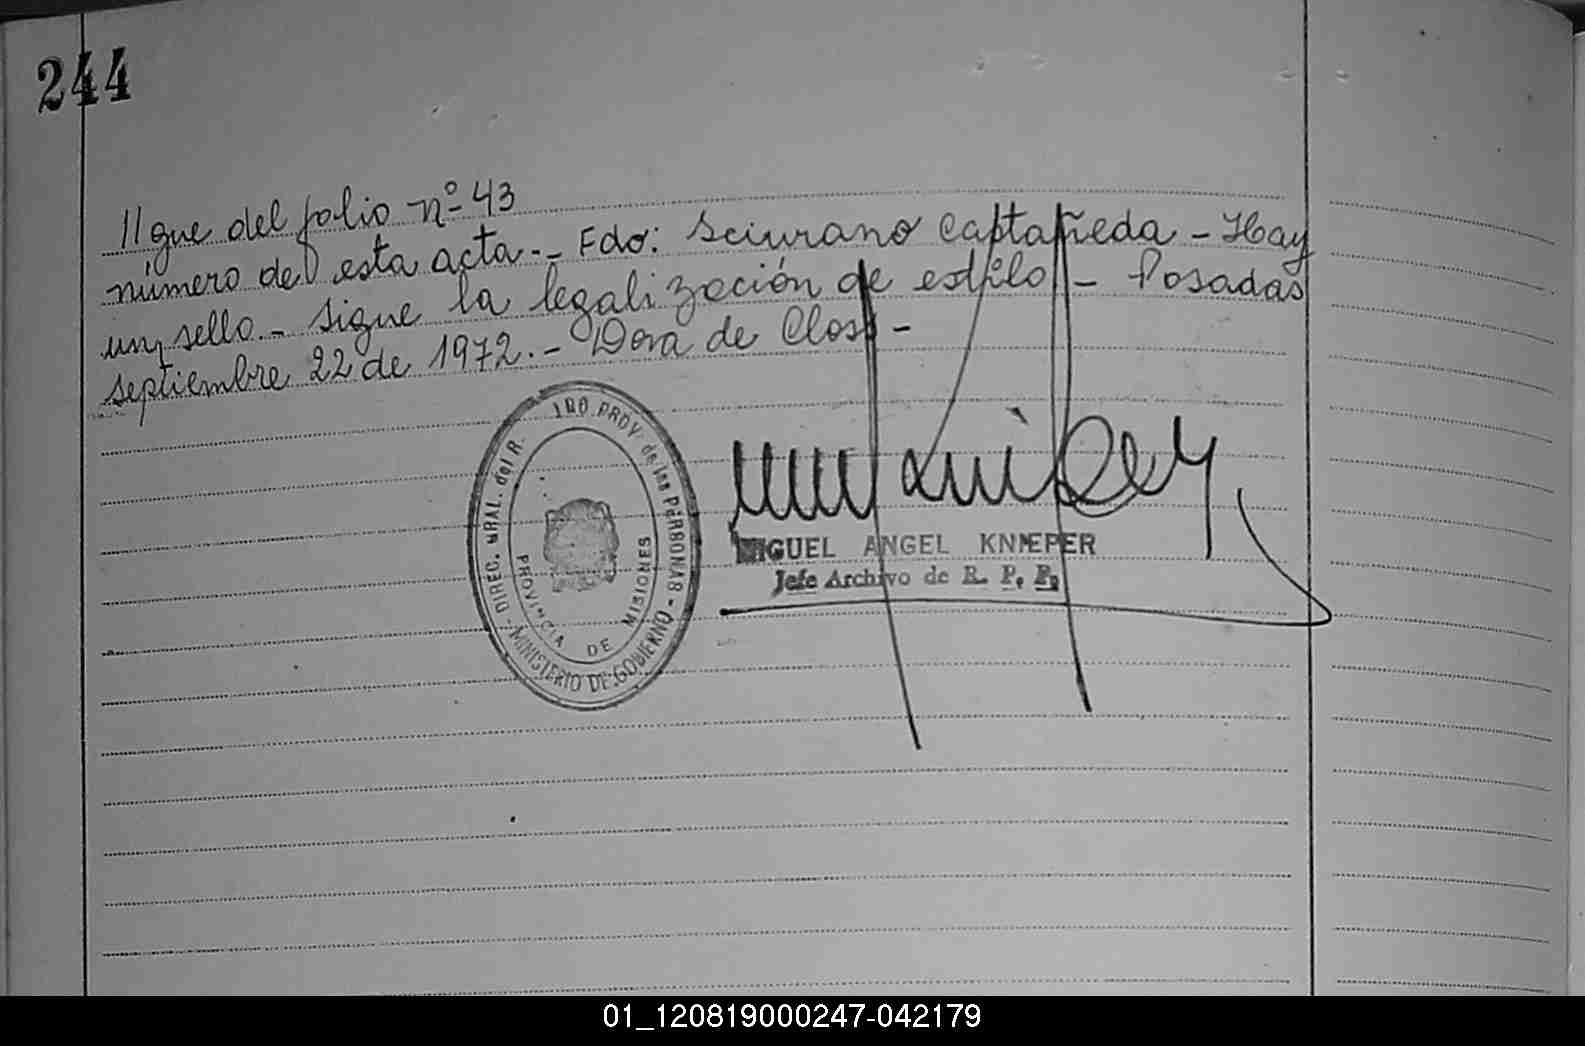 244
//gue del folio nº 43
número de esta acta.- Fdo: Sciurano Castañeda - Hay
un sello.- Sigue la legalización de estilo - Posadas
septiembre 22 de 1972.- Dora de Closs -
DIREC. GRAL. del R. PROV. de las PERSONAS - MINISTERIO DE GOBIERNO -
PROVINCIA DE MISIONES
MIGUEL ANGEL KNIEPER
Jefe Archivo de R. P. P.
01_120819000247-042179